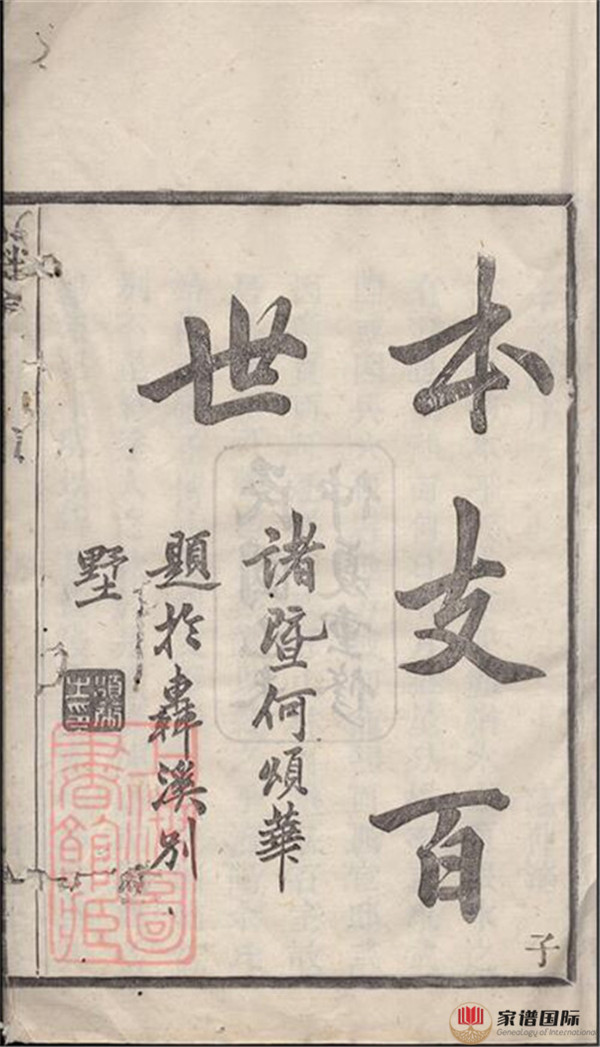 本支百
世
諸暨何頌華
題於溪別
墅
子
圖
書館藏
家谱国际
Genealogy of International